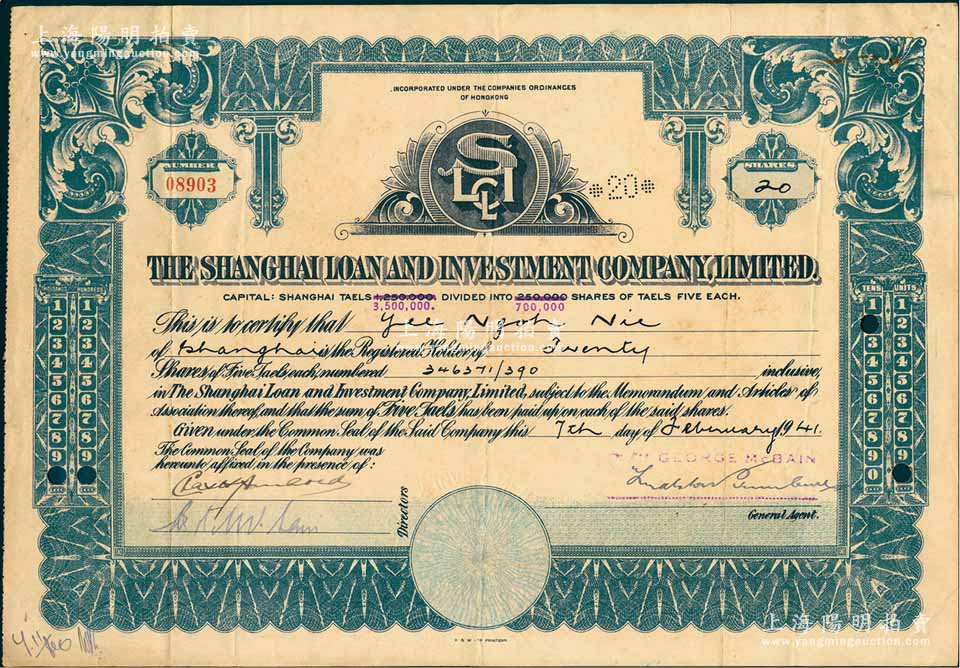 上海陽明拍賣
www.yangmingauction.com
INCORPORATED UNDER THE COMPANIES ORDINANCES
OF HONGKONG
NUMBER
08903
SLICL
*20*
SHARES
20
THE SHANGHAI LOAN AND INVESTMENT COMPANY, LIMITED.
CAPITAL: SHANGHAI TAELS 1,250,000. DIVIDED INTO 250,000 SHARES OF TAELS FIVE EACH.
3,500,000. 700,000
This is to certify that Yee Ngoh Nie
of Shanghai is the Registered Holder of Twenty
Shares of Five Taels each, numbered 346371/390 inclusive,
in The Shanghai Loan and Investment Company, Limited, subject to the Memorandum and Articles of
Association thereof, and that the sum of Five Taels has been paid up on each of the said shares.
Given under the Common Seal of the Said Company this 7th day of February 1941.
The Common Seal of the Company was
hereunto affixed in the presence of:
GEORGE McBAIN
Directors
General Agent.
THOUSANDS HUNDREDS
1 1
2 2
3 3
4 4
5 5
6 6
7 7
8 8
9 9
TENS UNITS
1 1
2 2
3 3
4 4
5 5
6 6
7 7
8 8
9 9
0 0
上海陽明拍賣
www.yangmingauction.com
上海陽明拍賣
www.yangmingauction.com